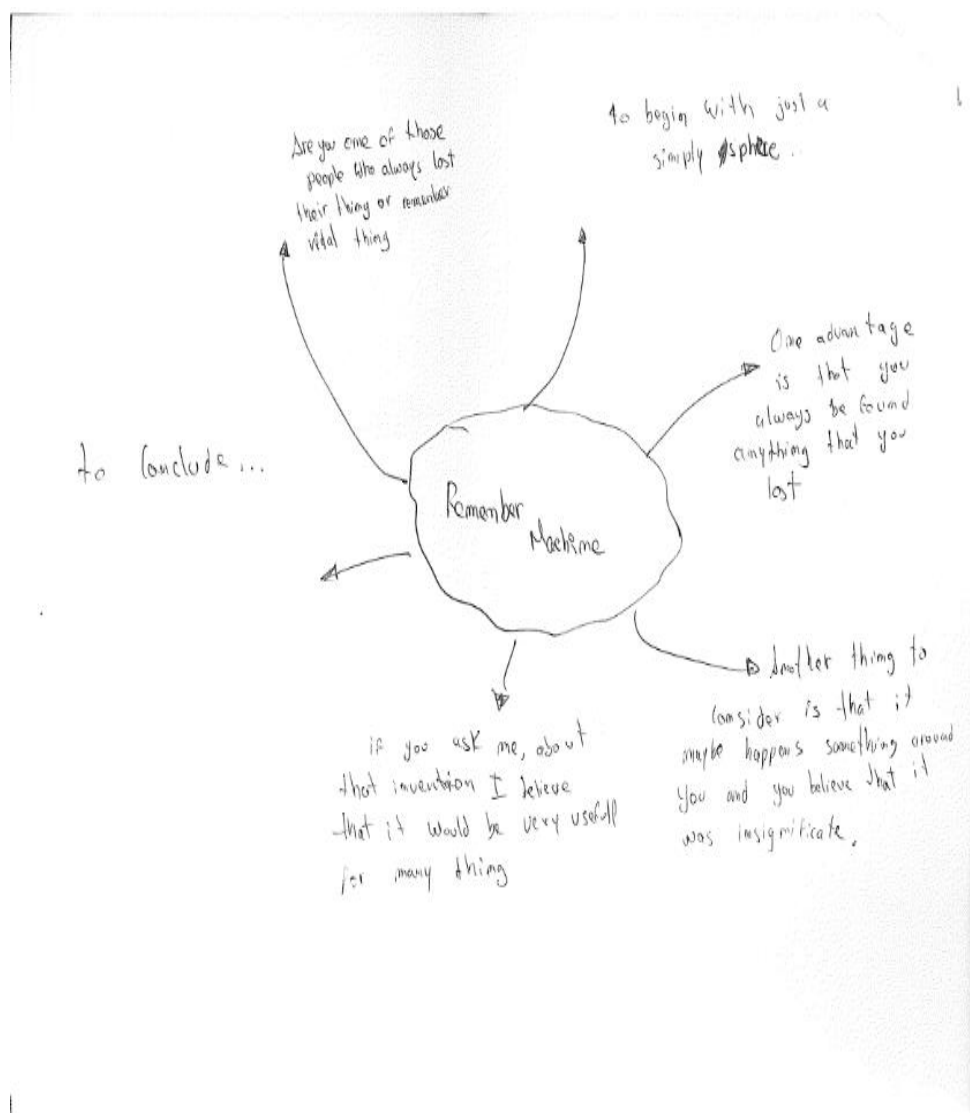 Are you one of those
people who always lost
their thing or remember
vital thing
to begin with just a
simply sphere...
One advantage
is that you
always be found
anything that you
lost
Another thing to
consider is that it
maybe happens something around
you and you believe that it
was insignificate.
if you ask me, about
that invention I believe
that it would be very usefull
for many thing
to conclude...
Remember
Machine